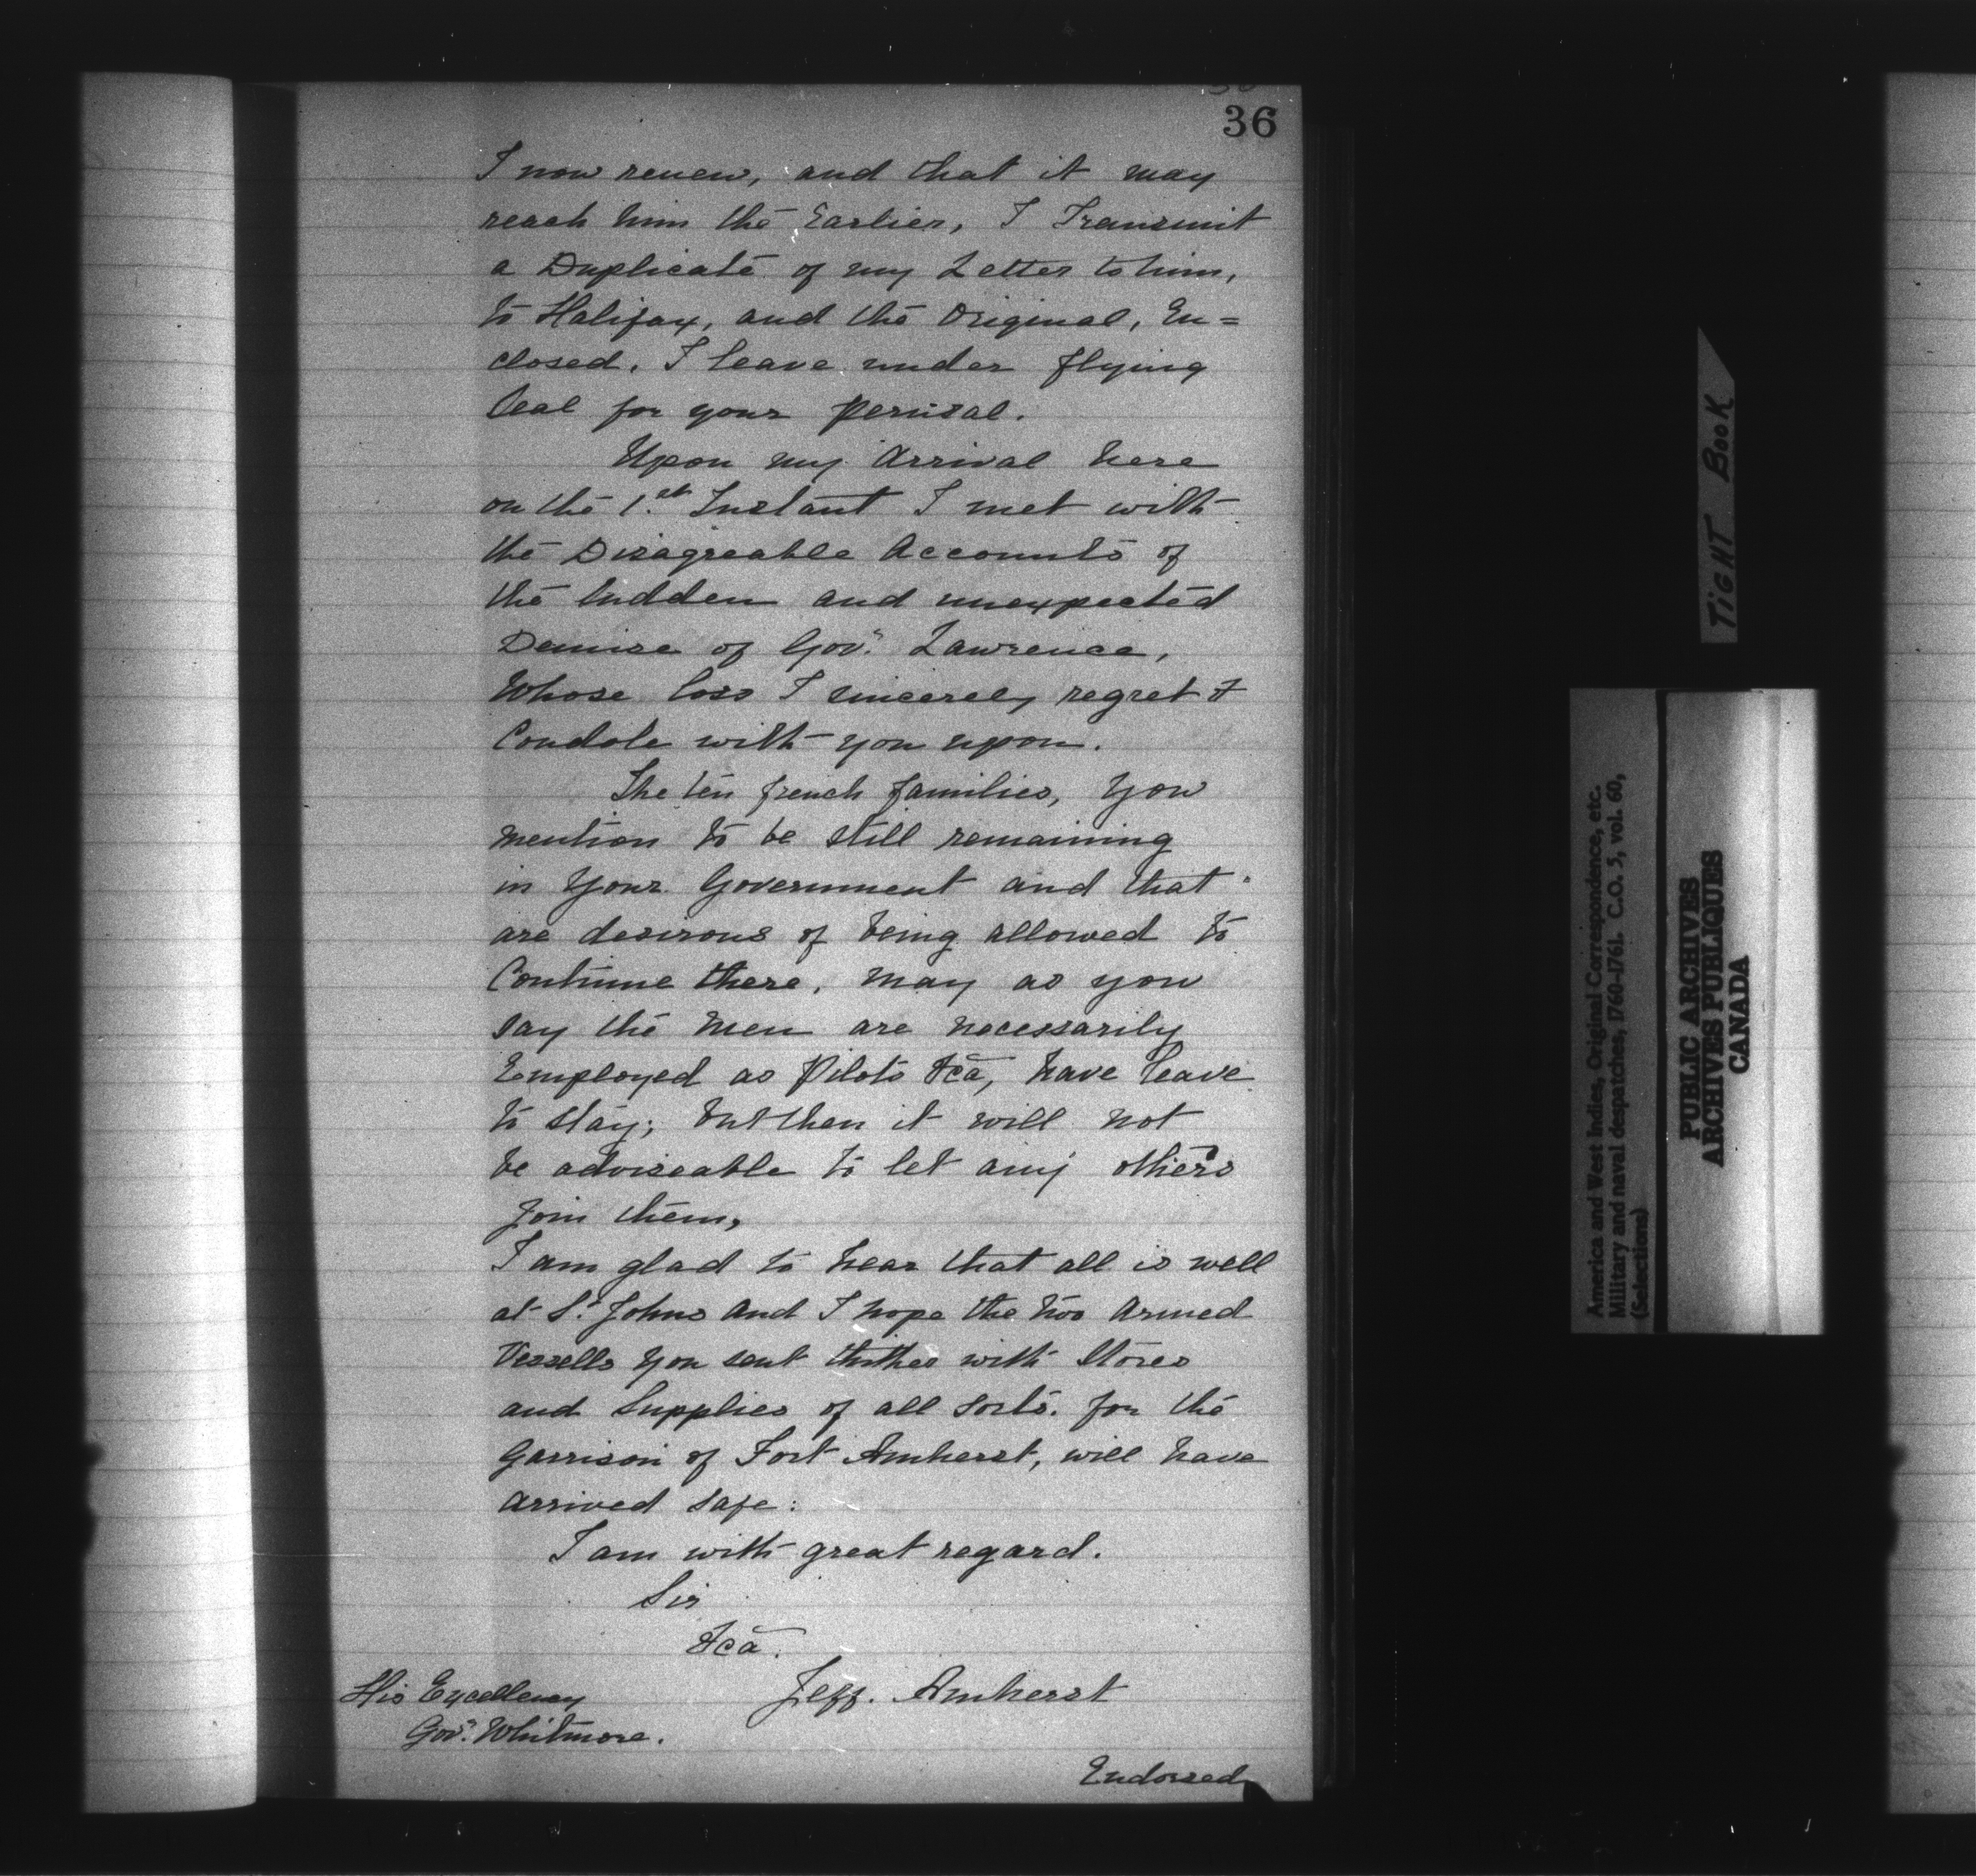 36
I now renew, and that it may
reach him the Earlier, I Transmit
a Duplicate of my Letter to him,
to Halifax, and the Original, En=
closed. I leave under flying
Seal for your perusal.
Upon my Arrival here
on the 1.st Instant I met with
the Disagreable Accounts of
the Sudden and unexpected
Demise of Gov.r Lawrence,
Whose loss I sincerely regret &
Condole with you upon.
The ten french families, you
mention to be still remaining
in Your Government and that
are desirous of being allowed to
Continue there, may as you
say the men are necessarily
Employed as Pilots &ca, have leave
to stay; but then it will not
be adviseable to let any others
join them,
I am glad to hear that all is well
at St. Johns and I hope the two Armed
Vessells you sent thither with Stores
and Supplies of all sorts. for the
Garrison of Fort Amherst, will have
arrived safe:
I am with great regard.
Sir
&ca.
Jeff. Amherst
His Excellency
Gov.r Whitmore.
Endorsed
TIGHT BOOK
America and West Indies, Original Correspondence, etc.
Military and naval despatches, 1760-1761. C.O. 5, vol. 60,
(Selections)
PUBLIC ARCHIVES
ARCHIVES PUBLIQUES
CANADA